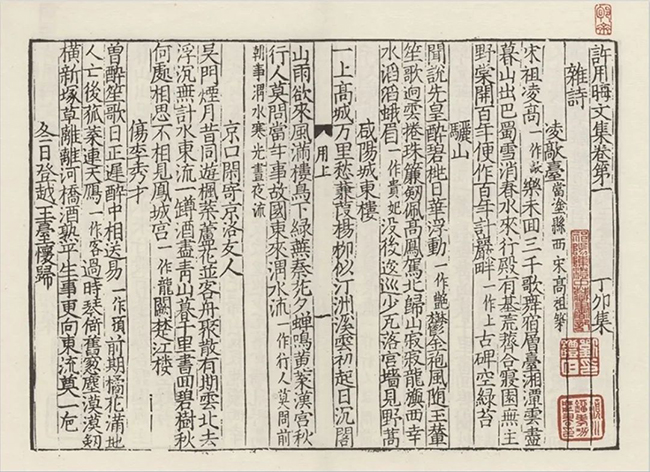 許用晦文集卷第一
雜詩 丁卯集
凌歊臺當塗縣西宋高祖築
宋祖凌高一作歊樂未回三千歌舞宿層臺湘潭雲盡
暮山出巴蜀雪消春水來行殿有基荒薺合寢園無主
野棠開百年便作百年計巖畔一作上古碑空綠苔
驪山
聞說先皇醉碧桃日華浮動一作艶鬱金袍風隨玉輦
笙歌迥雲捲珠簾劒佩高鳳駕北歸山寂寂龍旗西幸
水滔滔蛾眉一作貴妃沒後巡遊少瓦落宮墻見野蒿
咸陽城東樓
一上高城万里愁蒹葭楊柳似汀洲溪雲初起日沉閣
用上
一
山雨欲來風滿樓鳥下綠蕪秦苑夕蟬鳴黃葉漢宮秋
行人莫問當年事故國東來渭水流一作行人莫問前
朝事渭水寒光晝夜流
京口閑寄京洛友人
吳門煙月昔同遊楓葉蘆花並客舟聚散有期雲北去
浮沉無計水東流一罇酒盡青山暮千里書回碧樹秋
何處相思不相見鳳城宮一作龍闕楚江樓
傷李秀才
曾醉笙歌日正遲醉中相送易一作頃前期橘花滿地
人亡後菰葉連天鴈一作客過時琴倚舊窓塵漠漠劒
橫新塚草離離河橋酒熟平生事更向東流奠一巵
冬日登越王臺懷歸